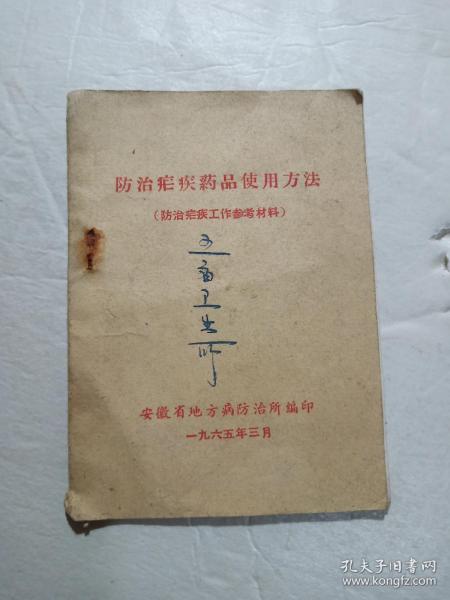 防治疟疾药品使用方法
(防治疟疾工作参考材料)
卫生所
安徽省地方病防治所编印
一九六五年三月
孔夫子旧书网
www.kongfz.com